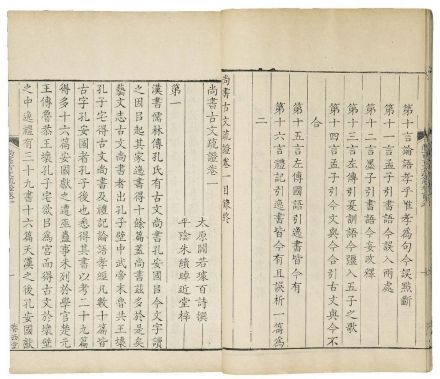 第十言論語孝乎惟孝為句今誤點斷
第十一言孟子引書語今誤入兩處
第十二言墨子引書語今妄改釋
第十三言左傳引夏訓語今彊入五子之歌
第十四言孟子引今文與今合引古文與今不
合
第十五言左傳國語引逸書皆今有
第十六言禮記引逸書皆今有且誤析一篇為
二
尚書古文疏證卷一目錄終
尚書古文疏證卷一
太原閻若璩百詩撰
平陰朱續晫近堂梓
第一
漢書儒林傳孔氏有古文尚書孔安國以今文字讀
之因以起其家逸書得十餘篇蓋尚書茲多於是矣
藝文志古文尚書者出孔子壁中武帝末魯共王壞
孔子宅得古文尚書及禮記論語孝經凡數十篇皆
古字孔安國者孔子後也悉得其書以考二十九篇
得多十六篇安國獻之遭巫蠱事未列於學官楚元
王傳魯恭王壞孔子宅欲以為宮而得古文於壞壁
之中逸禮有三十九書十六篇天漢之後孔安國獻
眷西堂